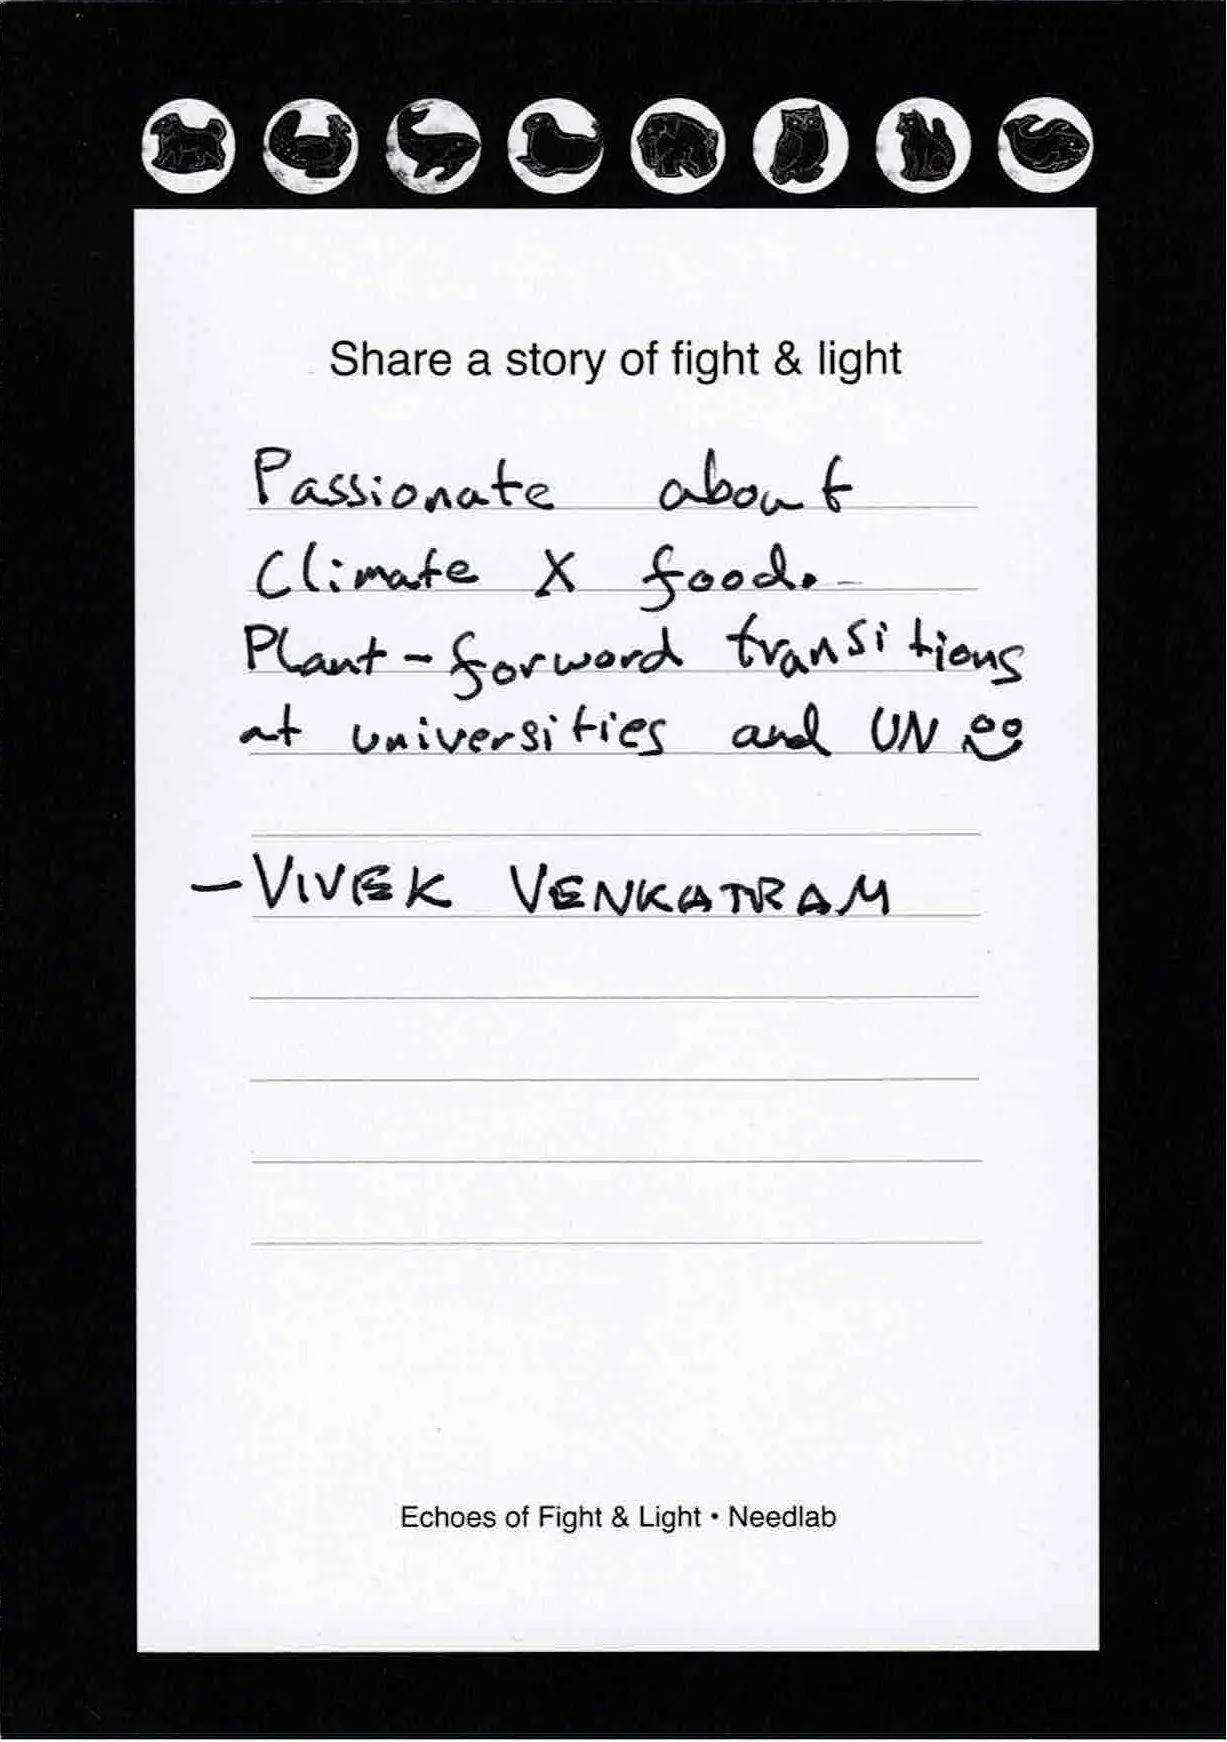 Share a story of fight & light
Passionate about
Climate X food.
Plant-forword transitions
at universities and UN
- VIVEK VENKATRAM
Echoes of Fight & Light • Needlab